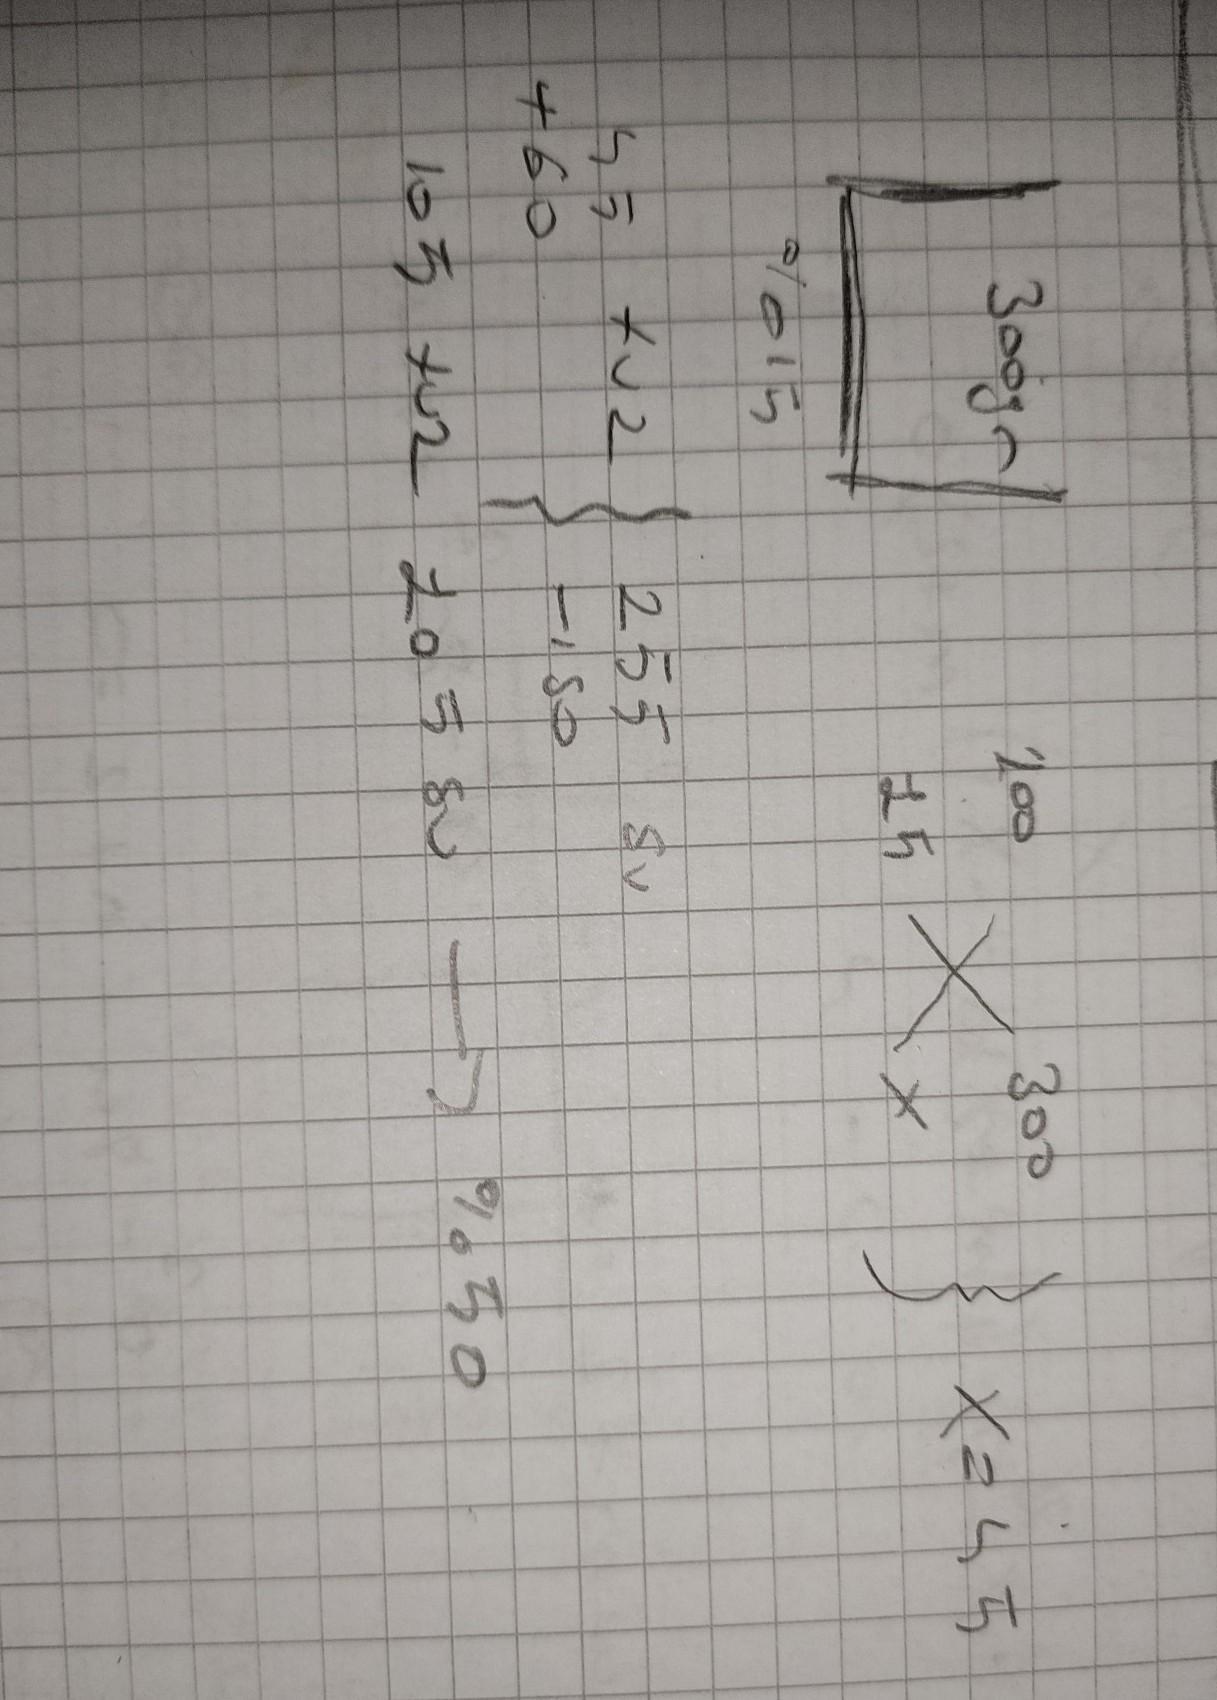 300gr 100 300
15 x } x=45
%15
45 tuz } 255 su
+60 -150
105 tuz 105 su → %50